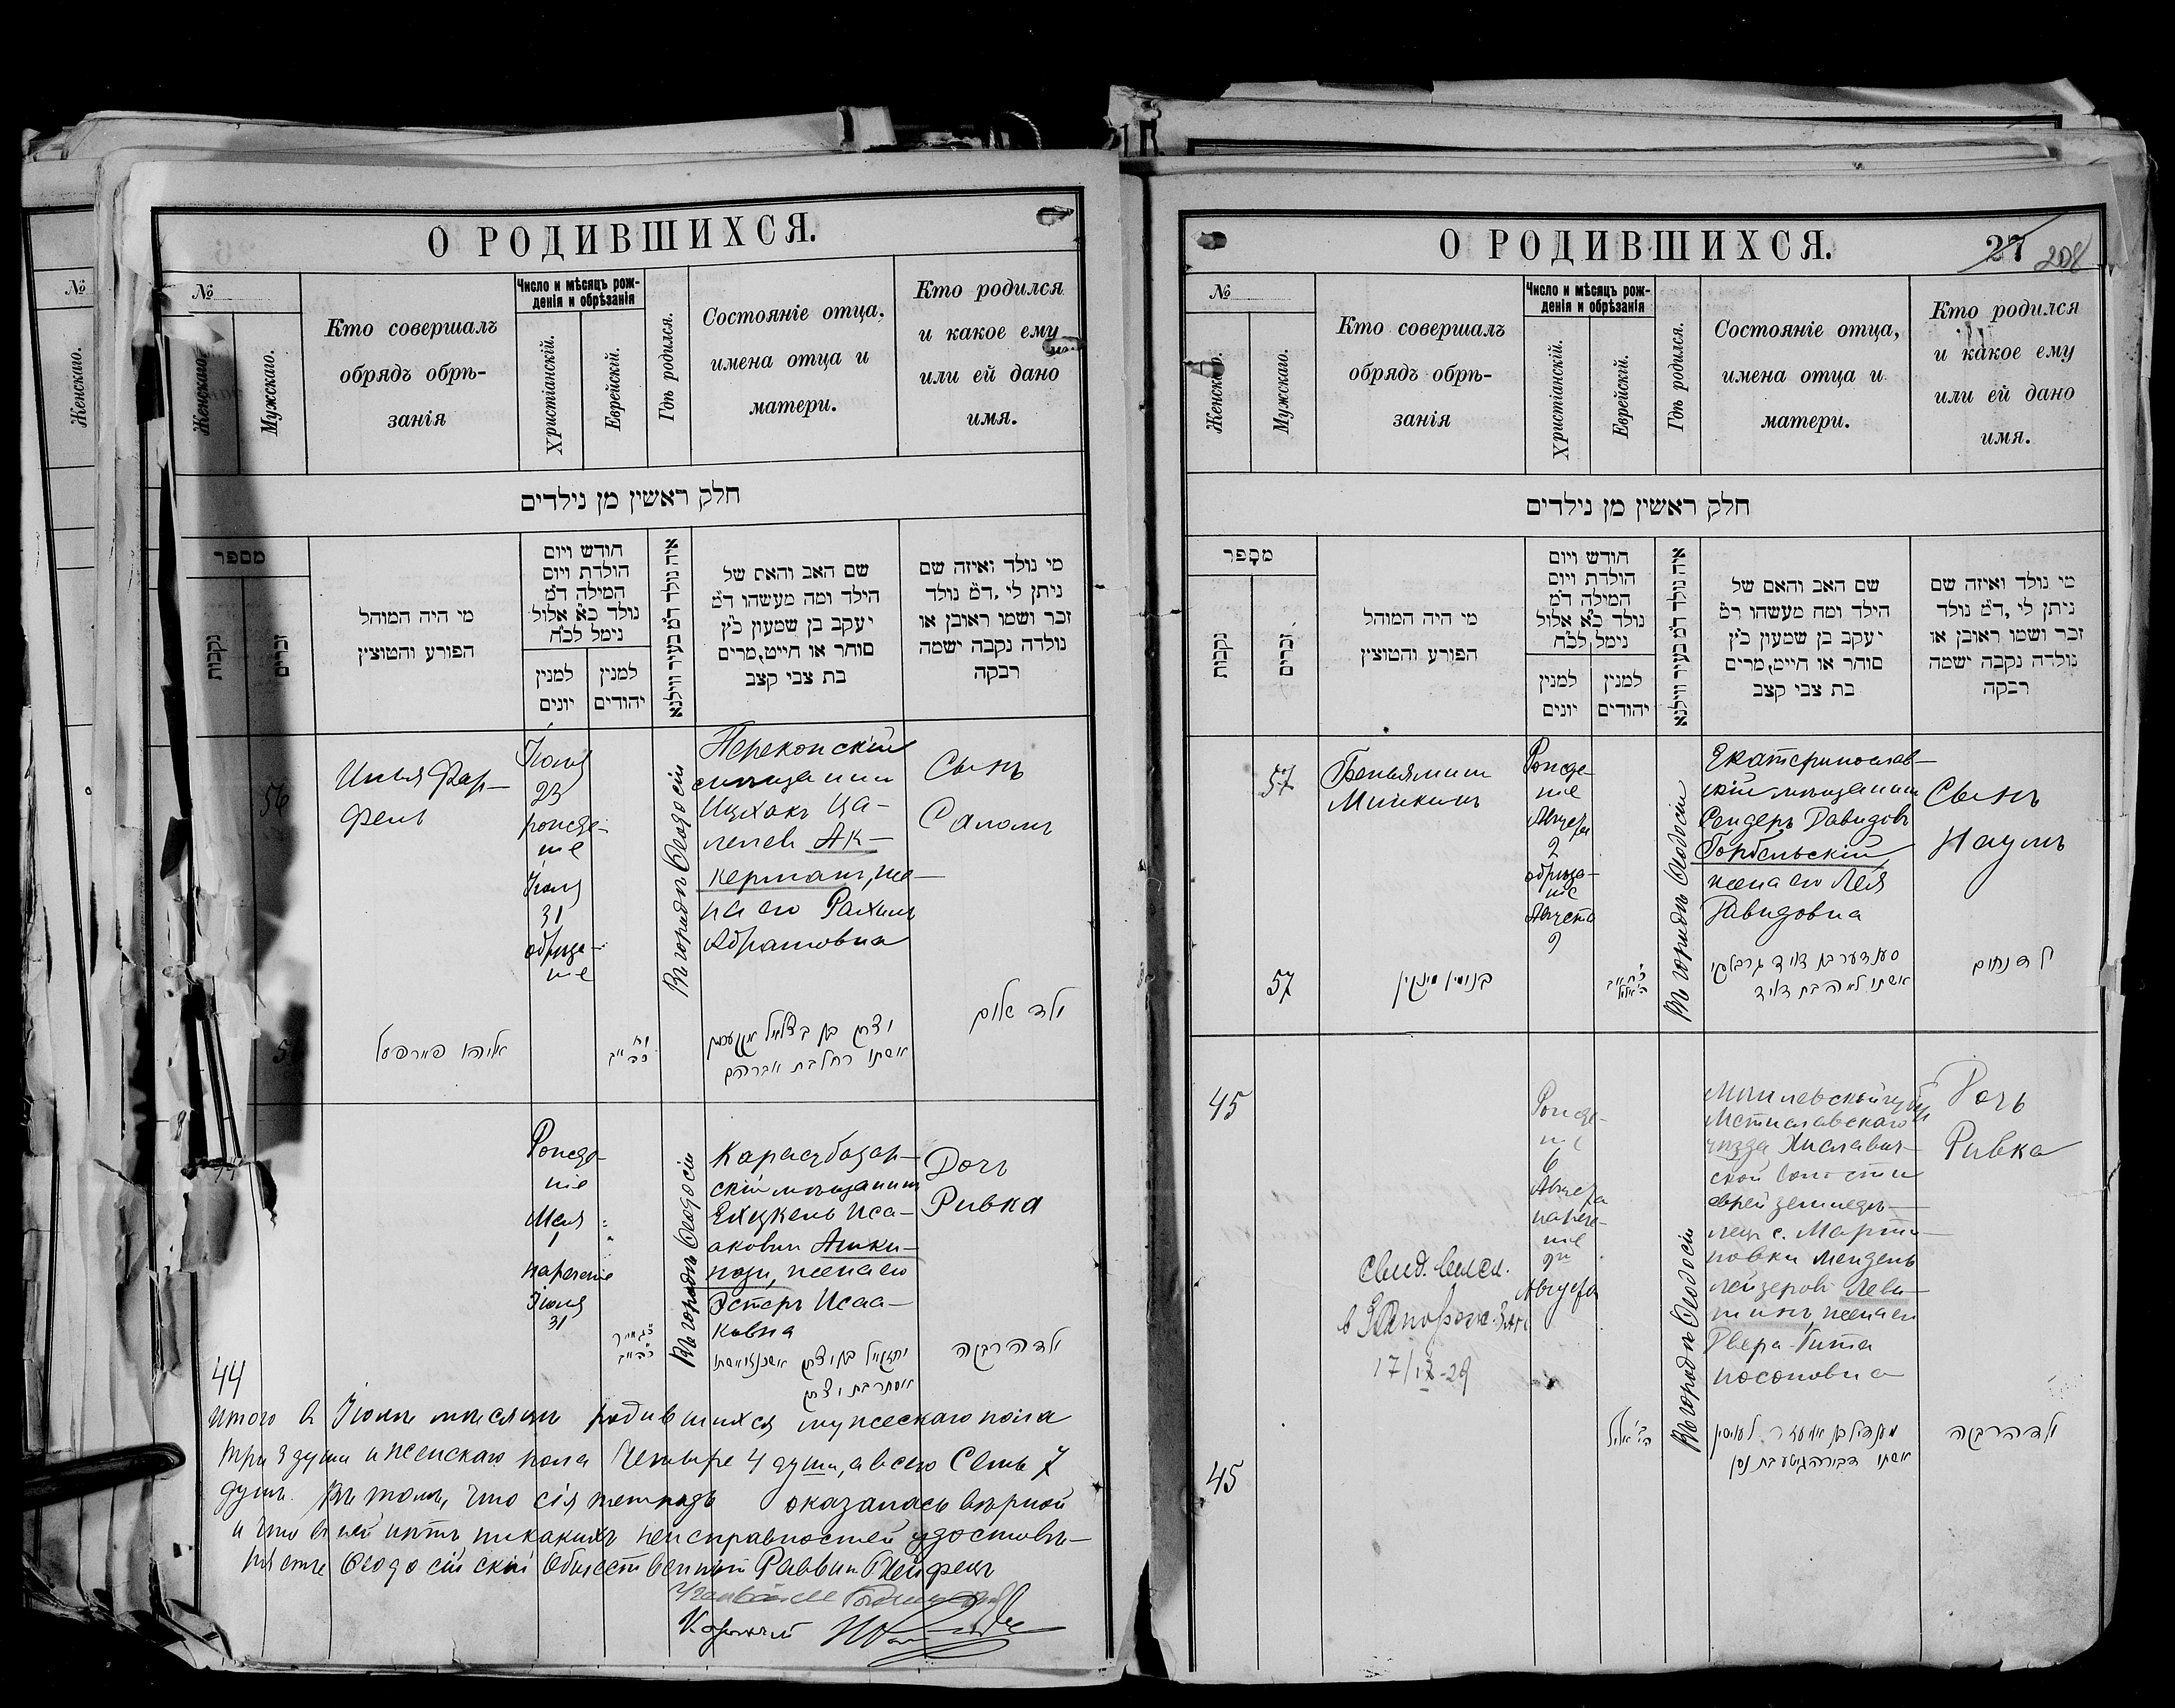 О РОДИВШИХСЯ.
№
Женскаго.
Мужскаго.
Кто совершалъ
обрядъ обрѣ-
занія
Число и мѣсяцъ рож-
денія и обрѣзанія
Христіанскій.
Еврейскій.
Гдѣ родился.
Состояніе отца,
имена отца и
матери.
Кто родился
и какое ему
или ей дано
имя.
חלק ראשין מן נילדים
מספר
נקבות
זכרים
מי היה המוהל
הפורע והמוצץ
חודש ויום
הולדת ויום
המילה ד״מ
נולד כ״א אלול
נימל לכ״ח
למנין
יונים
למנין
יהודים
איה נולד ד״מ בעיר ווילנא
שם האב והאם של
הילד ומה מעשהו ד״מ
יעקב בן שמעון כ״ץ
סוחר או חייט,מרים
בת צבי קצב
מי נולד ואיזה שם
ניתן לי ,ד״מ נולד
זכר ושמו ראובן או
נולדה נקבה ישמה
רבקה
56
Илья Фар-
фель
Іюля
23
рожде-
ніе
Іюля
31
обрѣза-
ніе
Въ городѣ Ѳеодосіи
Перекопскій
мѣщанинъ
Ицхакъ Ца-
лелевъ Ак-
керманъ, же-
на его Рахиль
Абрамовна
Сынъ
Саломъ
אליהו פארפעל
יצחק בן בצלאל אקקערמאן
אשתו רחל בת אברהם
ילד שלום
44
Рожде-
ніе
1
нареченіе
Іюля
31
Въ городѣ Ѳеодосіи
Карасубазар-
скій мѣщанинъ
Ехизкель Иса-
аковичъ Ашки-
нази, жена его
Эстеръ Исаа-
ковна
Дочь
Ривка
יחזקאל בן יצחק אשכנזי אשתו
אסתר בת יצחק
ילדה רבקה
Итого въ Іюлѣ мѣсяцѣ родившихся мужескаго пола
три 3 души и женскаго пола четыре 4 души, а всего семь 7
душъ. Въ томъ, что сія тетрадь оказалась вѣрной
и что въ ней нѣтъ никакихъ неисправностей удостовѣ-
ряетъ Ѳеодосійскій Общественный Раввинъ
О РОДИВШИХСЯ.
27
208
№
Женскаго.
Мужскаго.
Кто совершалъ
обрядъ обрѣ-
занія
Число и мѣсяцъ рож-
денія и обрѣзанія
Христіанскій.
Еврейскій.
Гдѣ родился.
Состояніе отца,
имена отца и
матери.
Кто родился
и какое ему
или ей дано
имя.
חלק ראשין מן נילדים
מספר
נקבות
זכרים
מי היה המוהל
הפורע והמוצץ
חודש ויום
הולדת ויום
המילה ד״מ
נולד כ״א אלול
נימל לכ״ח
למנין
יונים
למנין
יהודים
איה נולד ד״מ בעיר ווילנא
שם האב והאם של
הילד ומה מעשהו ד״מ
יעקב בן שמעון כ״ץ
סוחר או חייט,מרים
בת צבי קצב
מי נולד ואיזה שם
ניתן לי ,ד״מ נולד
זכר ושמו ראובן או
נולדה נקבה ישמה
רבקה
57
Беньяминъ
Минкинъ
Рожде-
ніе
Августа
2
обрѣза-
ніе
Августа
9
Въ городѣ Ѳеодосіи
Екатеринослав-
скій мѣщанинъ
Сендеръ Давидовъ
Горбельскій
жена его Лея
Давидовна
Сынъ
Наумъ
57
בנימין מינקין
סענדער בן דוד
אשתו לאה בת דוד
ילד נחום
45
Рожде-
ніе
6
Августа
нарече-
ніе
9го
Августа
Въ городѣ Ѳеодосіи
Могилевской губер
Мстиславскаго
уѣзда Хиславич-
ской волости
еврей земледѣ-
лецъ с. Марти-
новки Мендель
Лейзеровъ Леви-
тинъ, жена его
Двера-Гита
Носоновна
Дочь
Ривка
Свид. высл.
в Запорож. Загс
17/IX-29
45
מענדיל בן אליעזר לעוויטין
אשתו דבורה גיטע בת נסן
ילדה רבקה